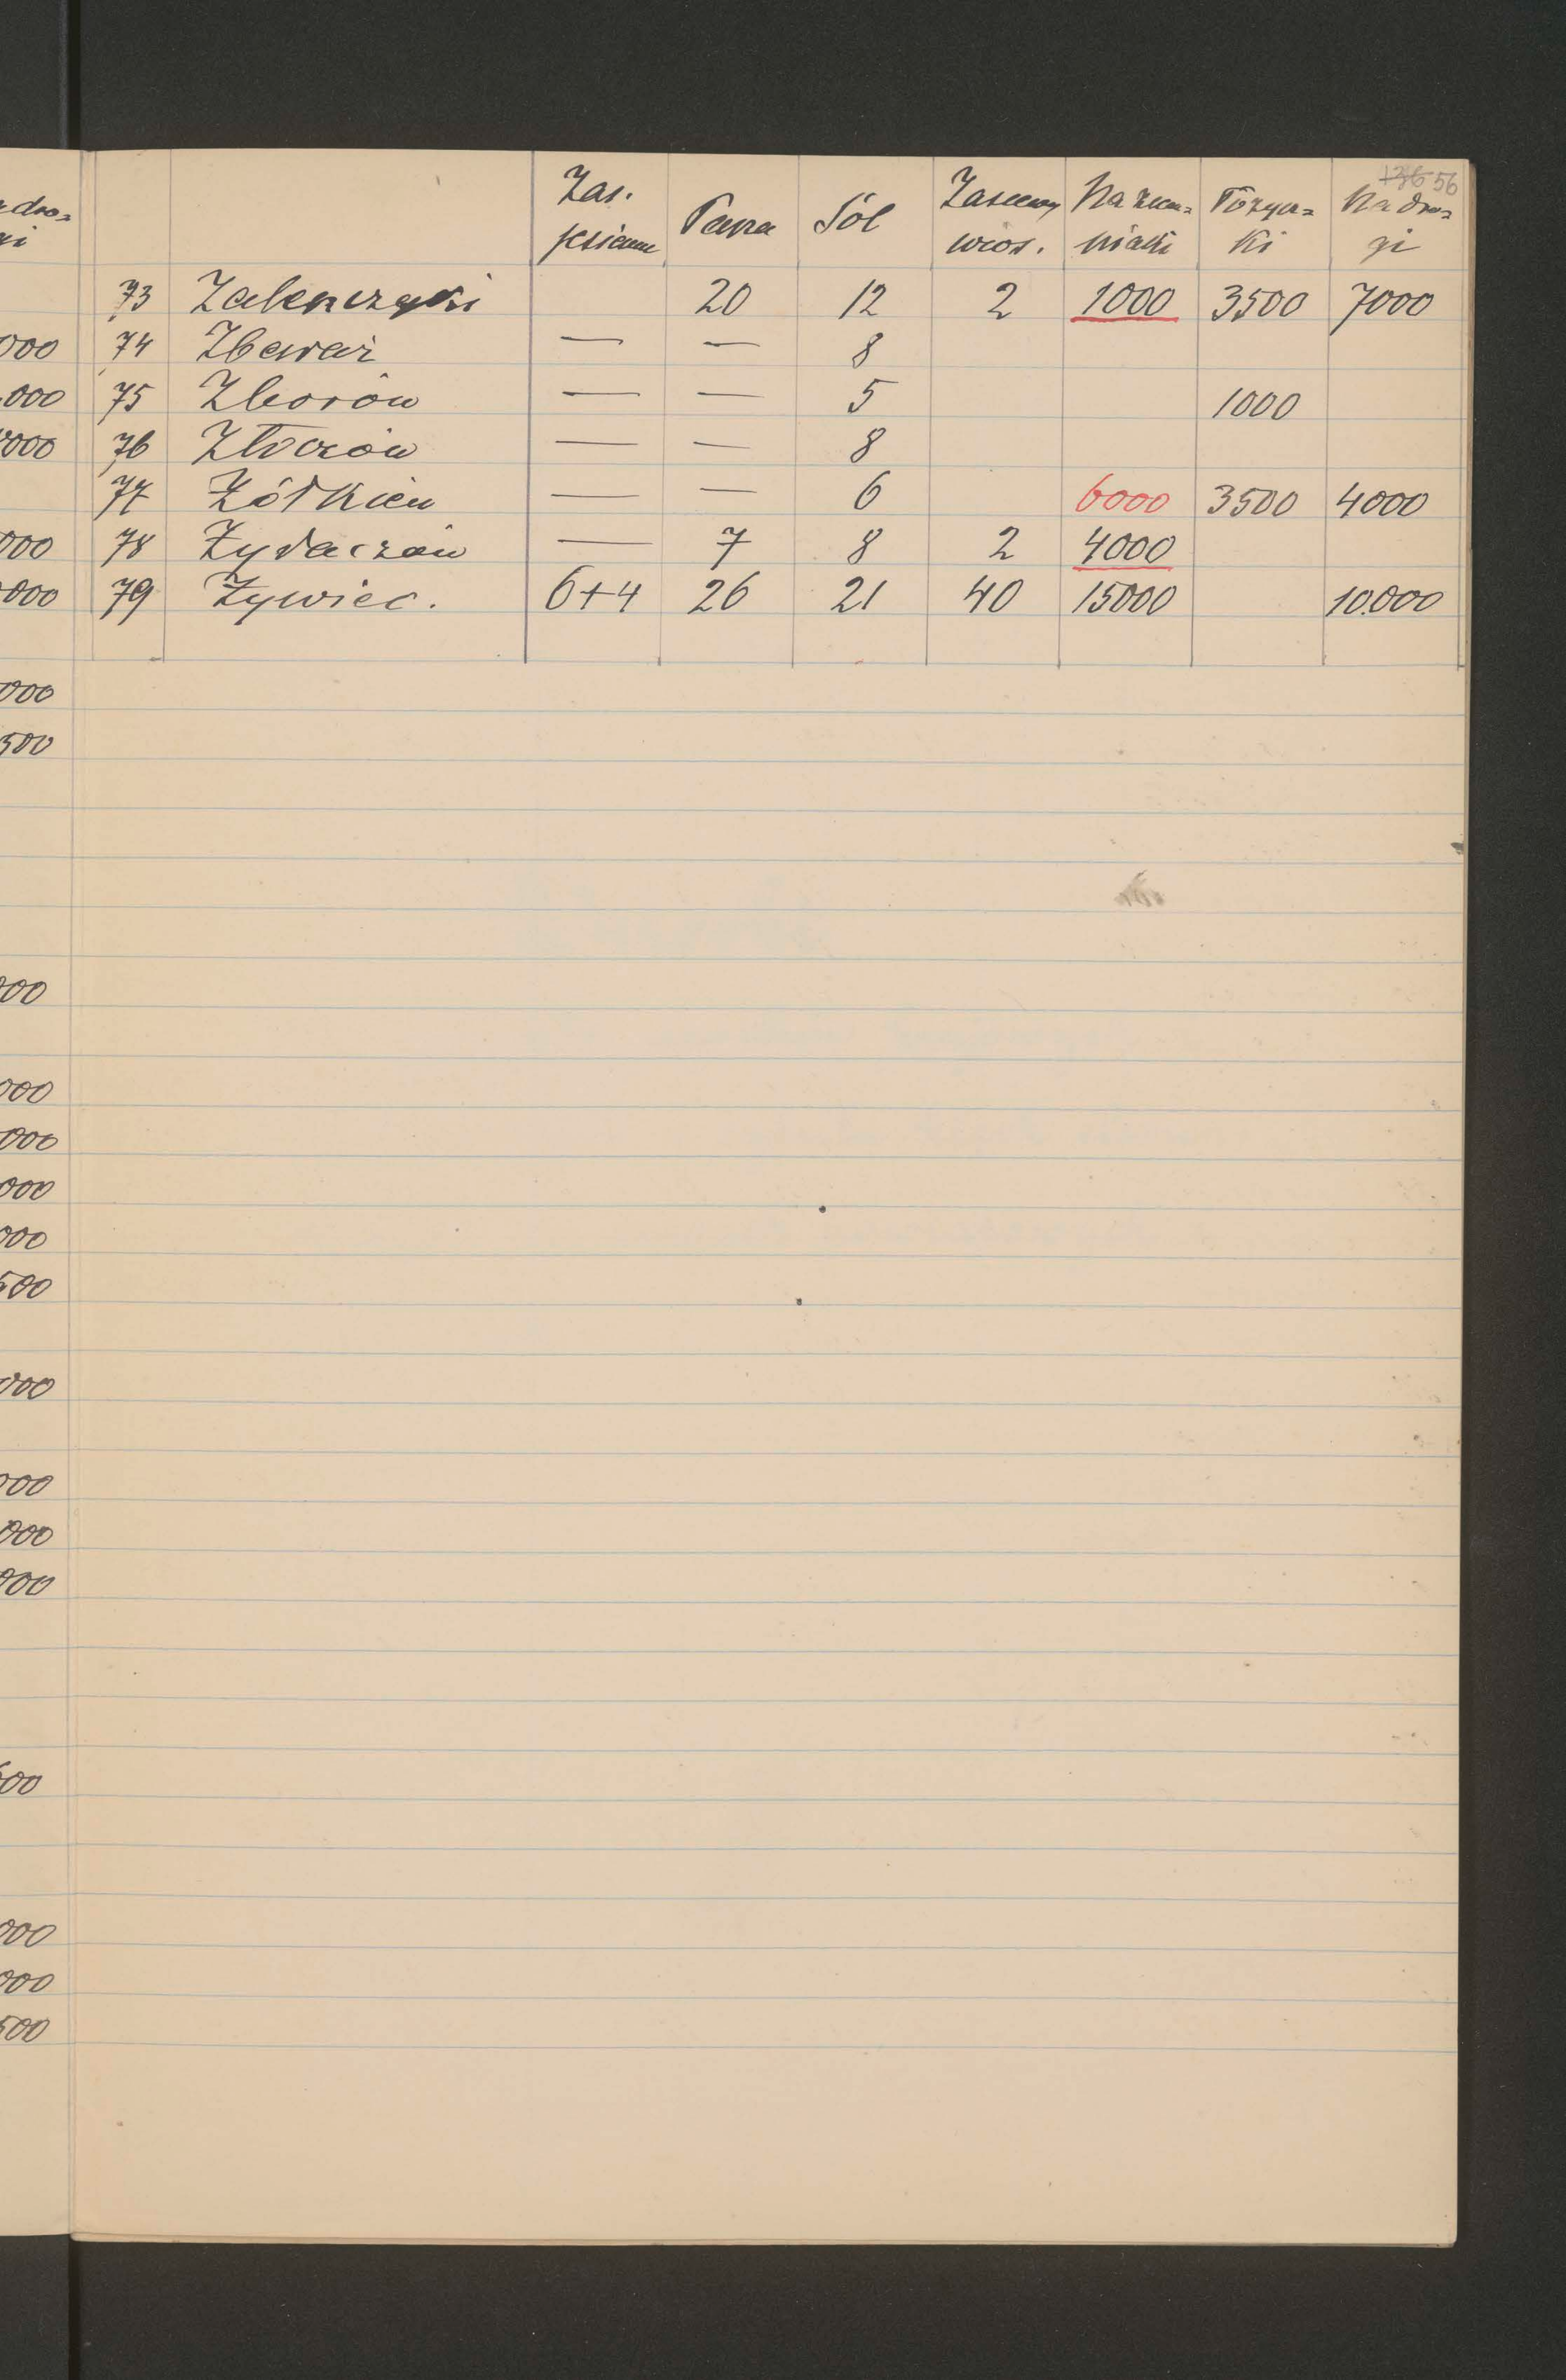 136 56
Zas. jesienne Pasza Sól Zasiewy wios. Na ziem= niaki Pożycz= ki Na dro= gi
73 Zaleszczyki 20 12 2 1000 3500 7000
74 Zbaraż — — 8
75 Zborów — — 5 1000
76 Złoczów — — 8
77 Żółkiew — — 6 6000 3500 4000
78 Żydaczów — 7 8 2 4000
79 Żywiec. 6+4 26 21 40 15000 10.000